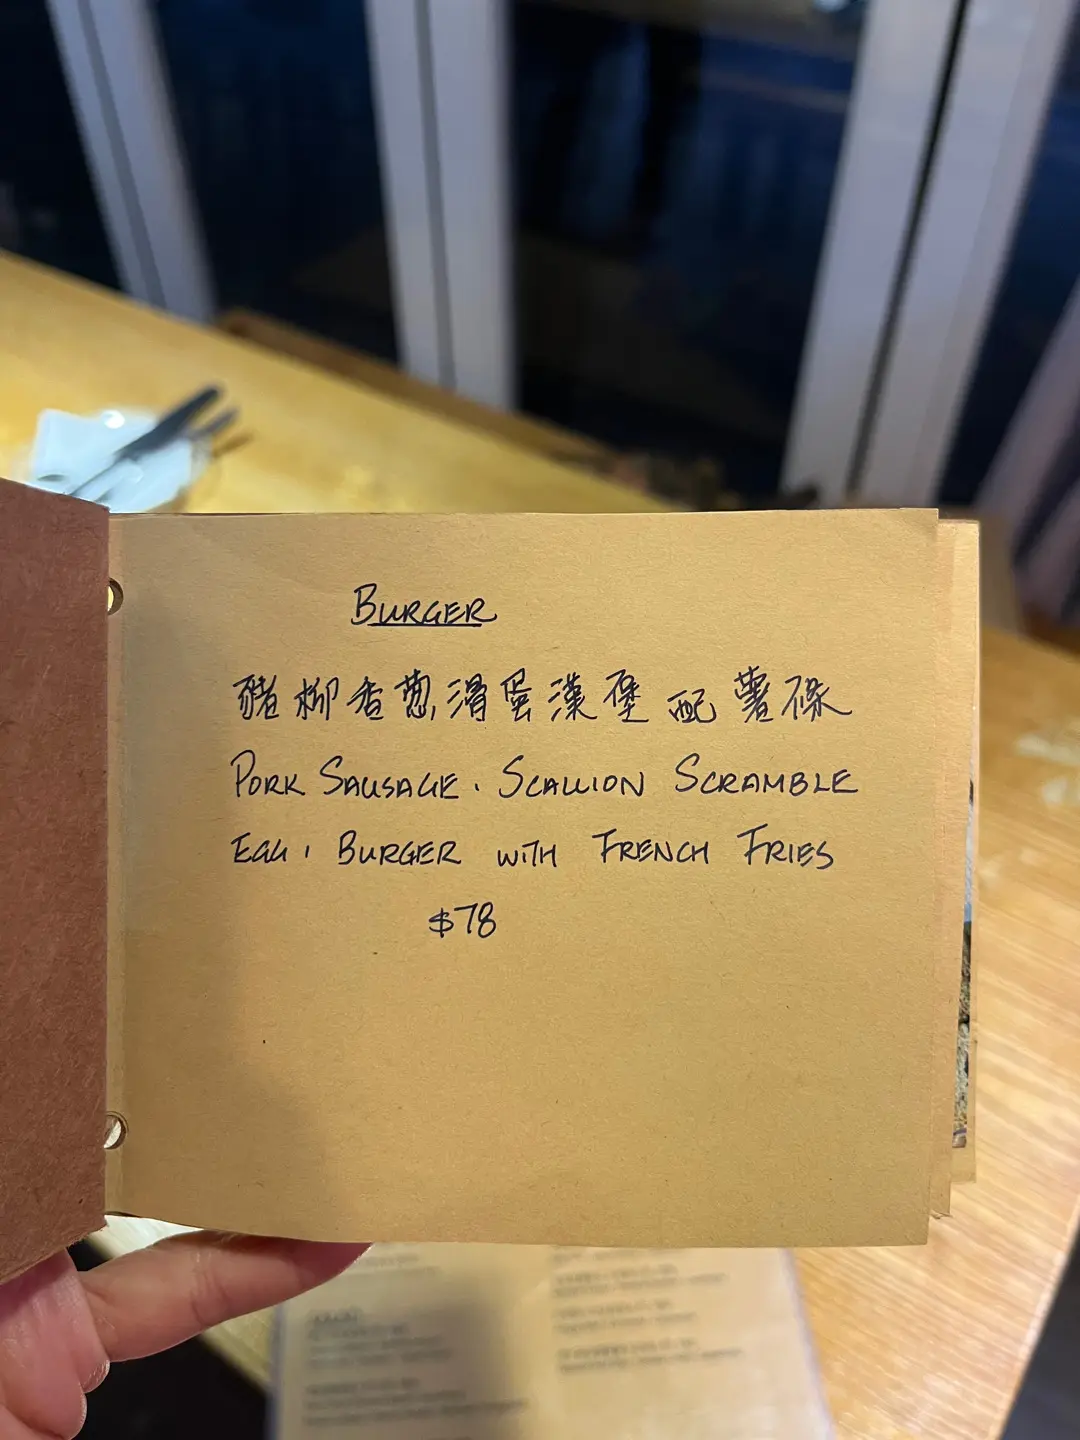 BURGER
豬柳香蔥滑蛋漢堡 配 薯條
PORK SAUSAGE. SCALLION SCRAMBLE
EGG, BURGER WITH FRENCH FRIES
$78